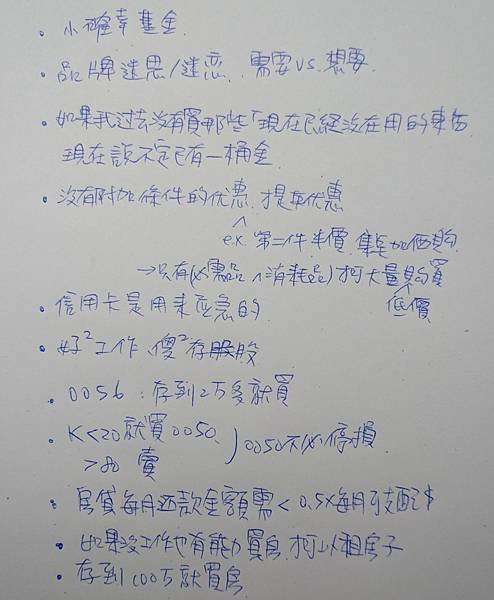 • 小確幸基金
• 品牌迷思/迷恋 需要VS.想要
• 如果我过去沒有買那些「現在已經沒在用的東西
現在說不定已有一桶金
• 沒有附加條件的优惠,才是真优惠
ex. 第二件半價,集點加価購
→只有(必需品∧消耗品)才可大量購買
低價
• 信用卡是用來应急的
• 好²工作、傻²存股
• 0056:存到2万多就買
• K<20就買0050
>80 賣
)0050不必停損
• 房貸每月还款金額需<0.5×每月可支配$
• 如果沒工作也有能力買房,才可以租房子
• 存到100万就買房